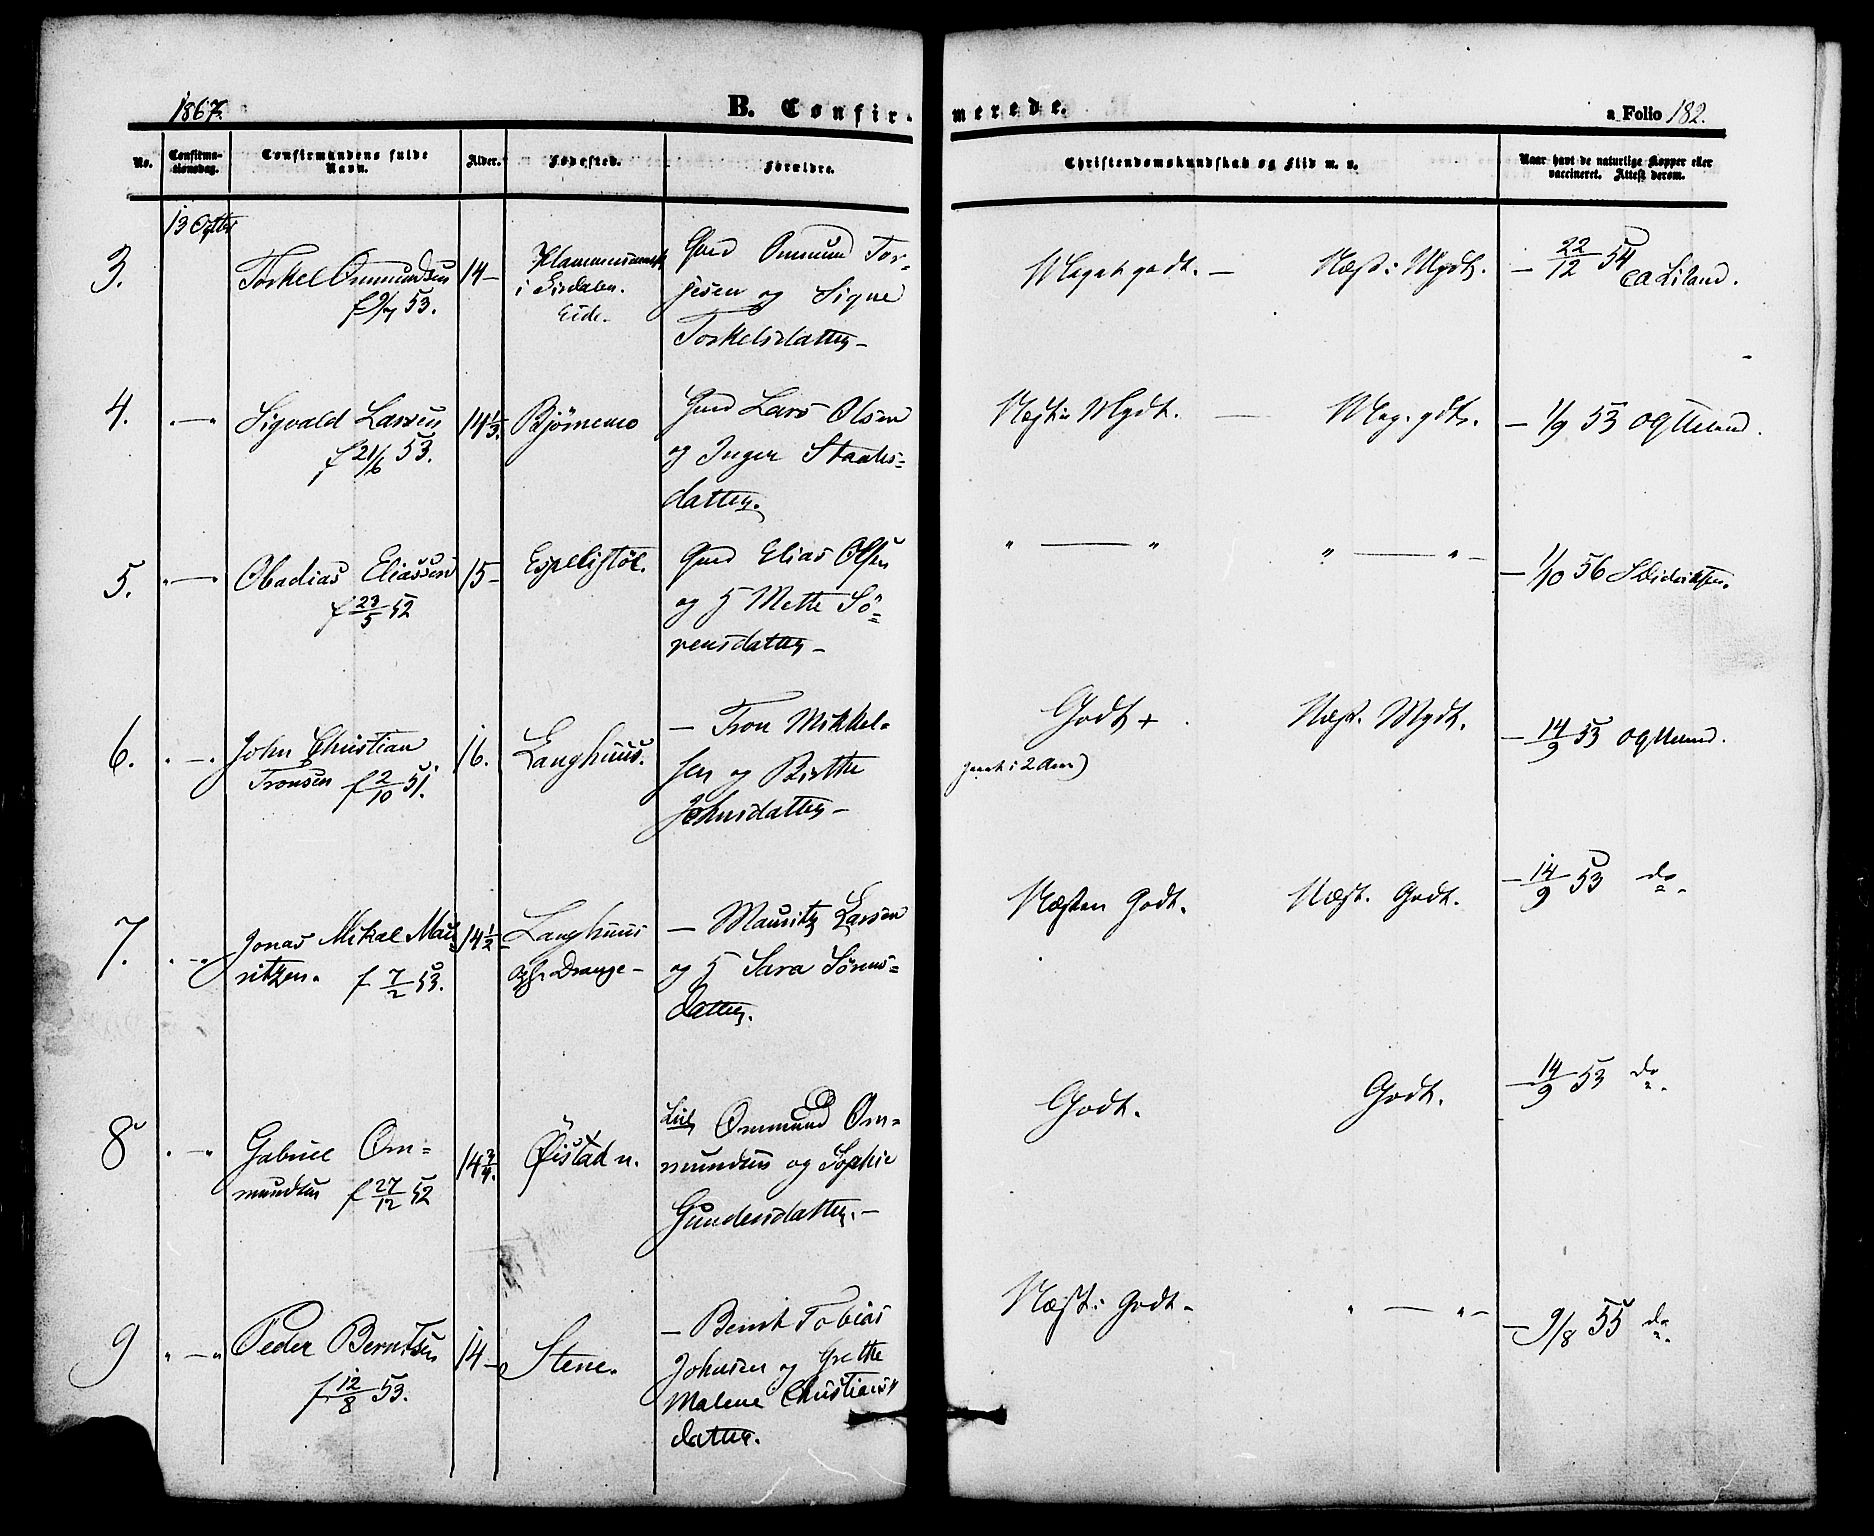 1867.
B. Confirmerede.
a Folio 182.
No.
Confirmationsdag.
Confirmandens fulde Navn.
Alder.
Fødested.
Forældre.
Christendomskundskab og Flid m. v.
Naar havt de naturlige Kopper eller vaccineret. Attest derom.
13 Octbr
3.
Torkel Ommundsen
14-
i Sirdalen.
Eide.
Gmd Omund Tor-
jesen og Signe
Torkelsdatter -
Meget godt. -
Næst: Mgdt.
- 22/12 54
CA Liland.
4.
Sigvald Larsen
f 21/6 53.
14 1/3.
Bjørnemo
Gmd Lars Olsen
og Inger Staals=
datter.
Næst: Mgdt. -
Meg. gdt.
- 1/9 53 OgTleland.
5.
Obadias Eliassen
f 23/5 52
15-
Espeligstøl.
Gmd Elias Olsen
og H Mette Sö=
rensdatter -
" — "
" — " -
- 1/10 56 S
6.
John Christian
Tronsen f 2/10 51.
16.
Langhuus.
- Tron Mikkel-
sen og Birthe
Johnsdatter -
Godt +
Næst. Mgdt.
- 14/9 53 OgTleland.
7.
Jonas Mikal Mau
ritzen. f 7/2 53.
14 1/2-
Langhuus
opf. Drange -
- Mauritz Larsen
og H Sara Sörens=
datter.
Næsten Godt.
Næst. Godt.
- 14/9 53 do
8
Gabriel Om=
mundsen f 27/12 52
14 3/4.
Øistad n.
Ommund Om-
mundsen og Sophie
Gundersdatter. -
Godt.
Godt.
- 14/9 53 do
9
Peder Berntsen
f 12/8 53.
14-
Stene.
- Bernt Tobias
Johnsen og Grethe
Malene Christians"
datter.
Næst: Godt -
" — " -
- 9/8 55 do